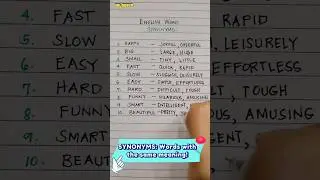 ENGLISH WORD
SYNONYMS
1. HAPPY – JOYFUL, CHEERFUL
2. BIG – LARGE, HUGE
3. SMALL – TINY, LITTLE
4. FAST – QUICK, RAPID
5. SLOW – SLUGGISH, LEISURELY
6. EASY – SIMPLE, EFFORTLESS
7. HARD – DIFFICULT, TOUGH
8. FUNNY – HILARIOUS, AMUSING
9. SMART – INTELLIGENT,
10. BEAUTIFUL – PRETTY,
SYNONYMS: Words with
the same meaning!
4. FAST
5. SLOW
6. EASY
7. HARD
8. FUNNY
9. SMART
10. BEAU
RAPID
LEISURELY
EFFORTLESS
TOUGH
AMUSING